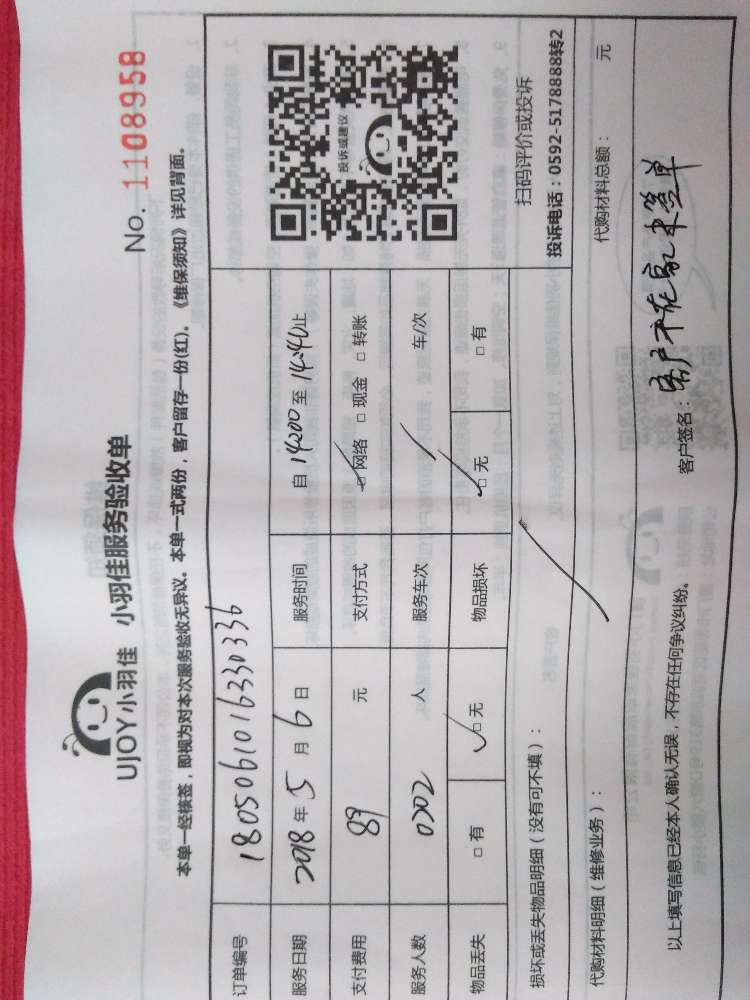 UJOY小羽佳 小羽佳服务验收单
No. 1108958
本单一经核签，即视为对本次服务验收无异议。本单一式两份，客户留存一份(红)。《维保须知》详见背面。
订单编号 1805061016330336
服务日期 2018年5月6日 服务时间 自14:00至14:40止
支付费用 89元 支付方式 ☑网络 □现金 □转账
服务人数 0302人 服务车次 / 车/次
物品丢失 □有 ☑无 物品损坏 ☑无 □有
投诉或建议
扫码评价或投诉
投诉电话：0592-5178888转2
损坏或丢失物品明细（没有可不填）： /
代购材料明细（维修业务）： 代购材料总额： 元
以上填写信息已经本人确认无误，不存在任何争议纠纷。 客户签名：客户不在家未签单